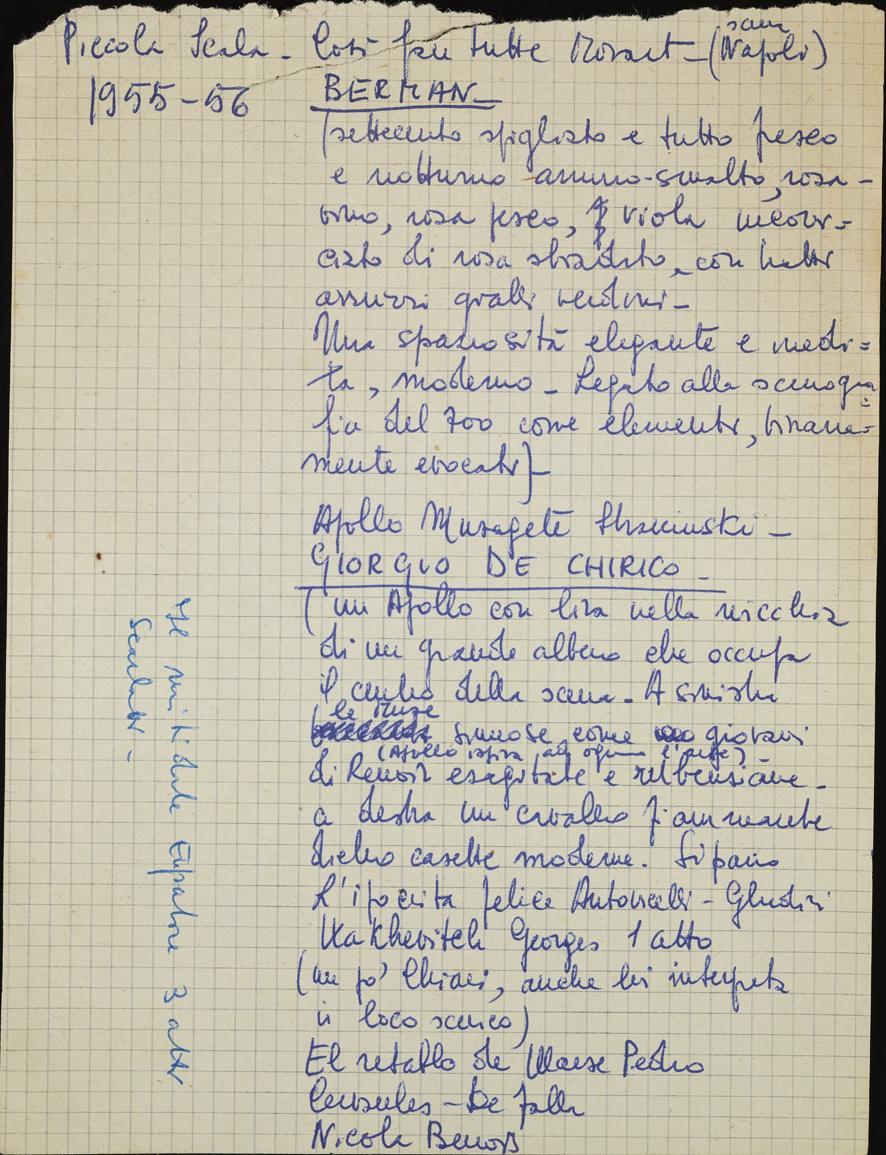 Piccola Scala - Così fan tutte Mozart - (Napoli)
scena
1955-56 BERMAN -
(settecento spigliato e tutto pesco
e notturno azzurro-smalto, rosa-
vino, rosa pesco, viola incorni=
ciato di rosa sbiadito, con tratti
azzurri gialli verdini -
Una spaziosità elegante e inedi=
ta, moderno - Legato alla scenogra=
fia del 700 come elementi, bizzarra=
mente evocati) -
Apollo Musagete Strawinski -
GIORGIO DE CHIRICO -
(un Apollo con lira nella nicchia
di un grande albero che occupa
il centro della scena - A sinistra
le Muse
sinuose come giovani
(Apollo ispira ad ognuna l'arte) -
di Renoir esagitate e rubensiane -
a destra un cavallo fiammante
dietro casette moderne. Sipario
L'ipocrita felice Antonicelli - Ghedini
Wakhevitch Georges 1 atto
(un po' Chiari, anche lui interpreta
il loco scenico)
El retablo de Maese Pedro
Cervantes - De Falla
Nicola Benois
Il mitridate Eupatore 3 atti
Scarlatti -